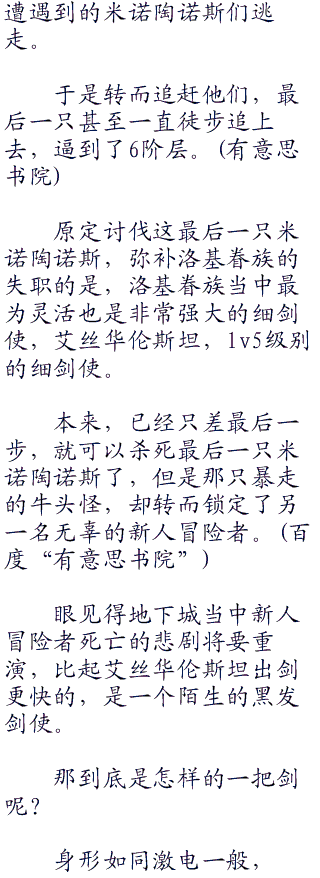 遭遇到的米诺陶诺斯们逃
走。
于是转而追赶他们，最
后一只甚至一直徒步追上
去，逼到了6阶层。(有意思
书院)
原定讨伐这最后一只米
诺陶诺斯，弥补洛基眷族的
失职的是，洛基眷族当中最
为灵活也是非常强大的细剑
使，艾丝华伦斯坦，lv5级别
的细剑使。
本来，已经只差最后一
步，就可以杀死最后一只米
诺陶诺斯了，但是那只暴走
的牛头怪，却转而锁定了另
一名无辜的新人冒险者。(百
度“有意思书院”)
眼见得地下城当中新人
冒险者死亡的悲剧将要重
演，比起艾丝华伦斯坦出剑
更快的，是一个陌生的黑发
剑使。
那到底是怎样的一把剑
呢?
身形如同激电一般，